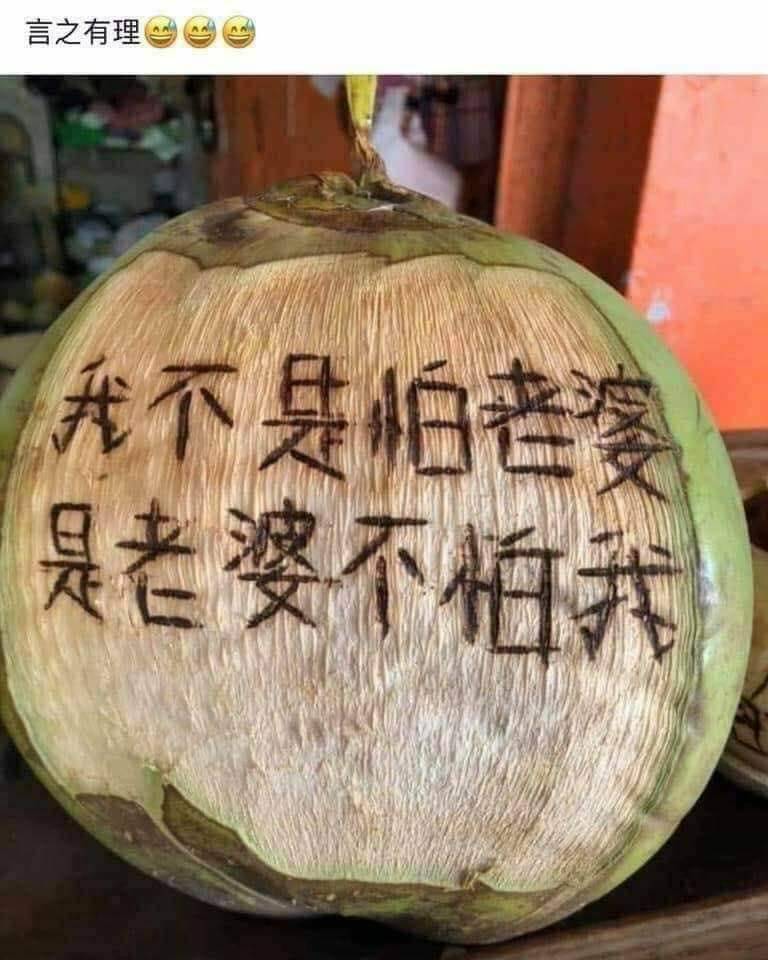 言之有理😅😅😅
我不是怕老婆
是老婆不怕我